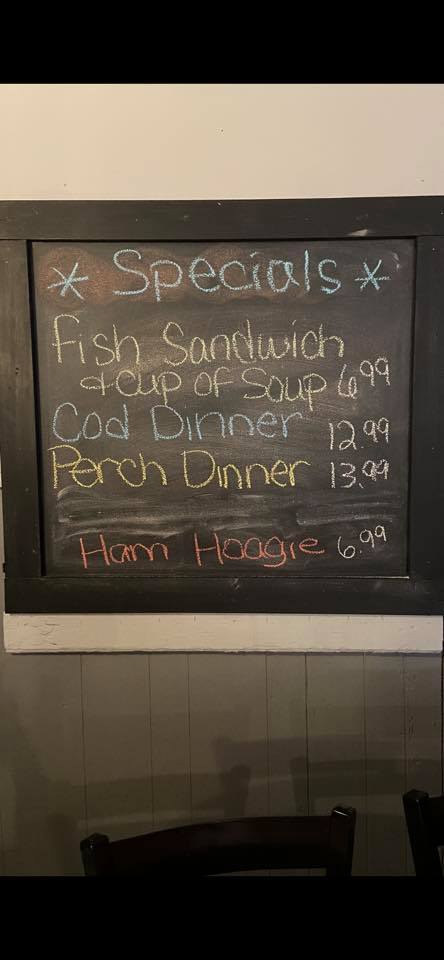 * Specials *
Fish Sandwich
& Cup of Soup 6.99
Cod Dinner 12.99
Perch Dinner 13.99
Ham Hoagie 6.99